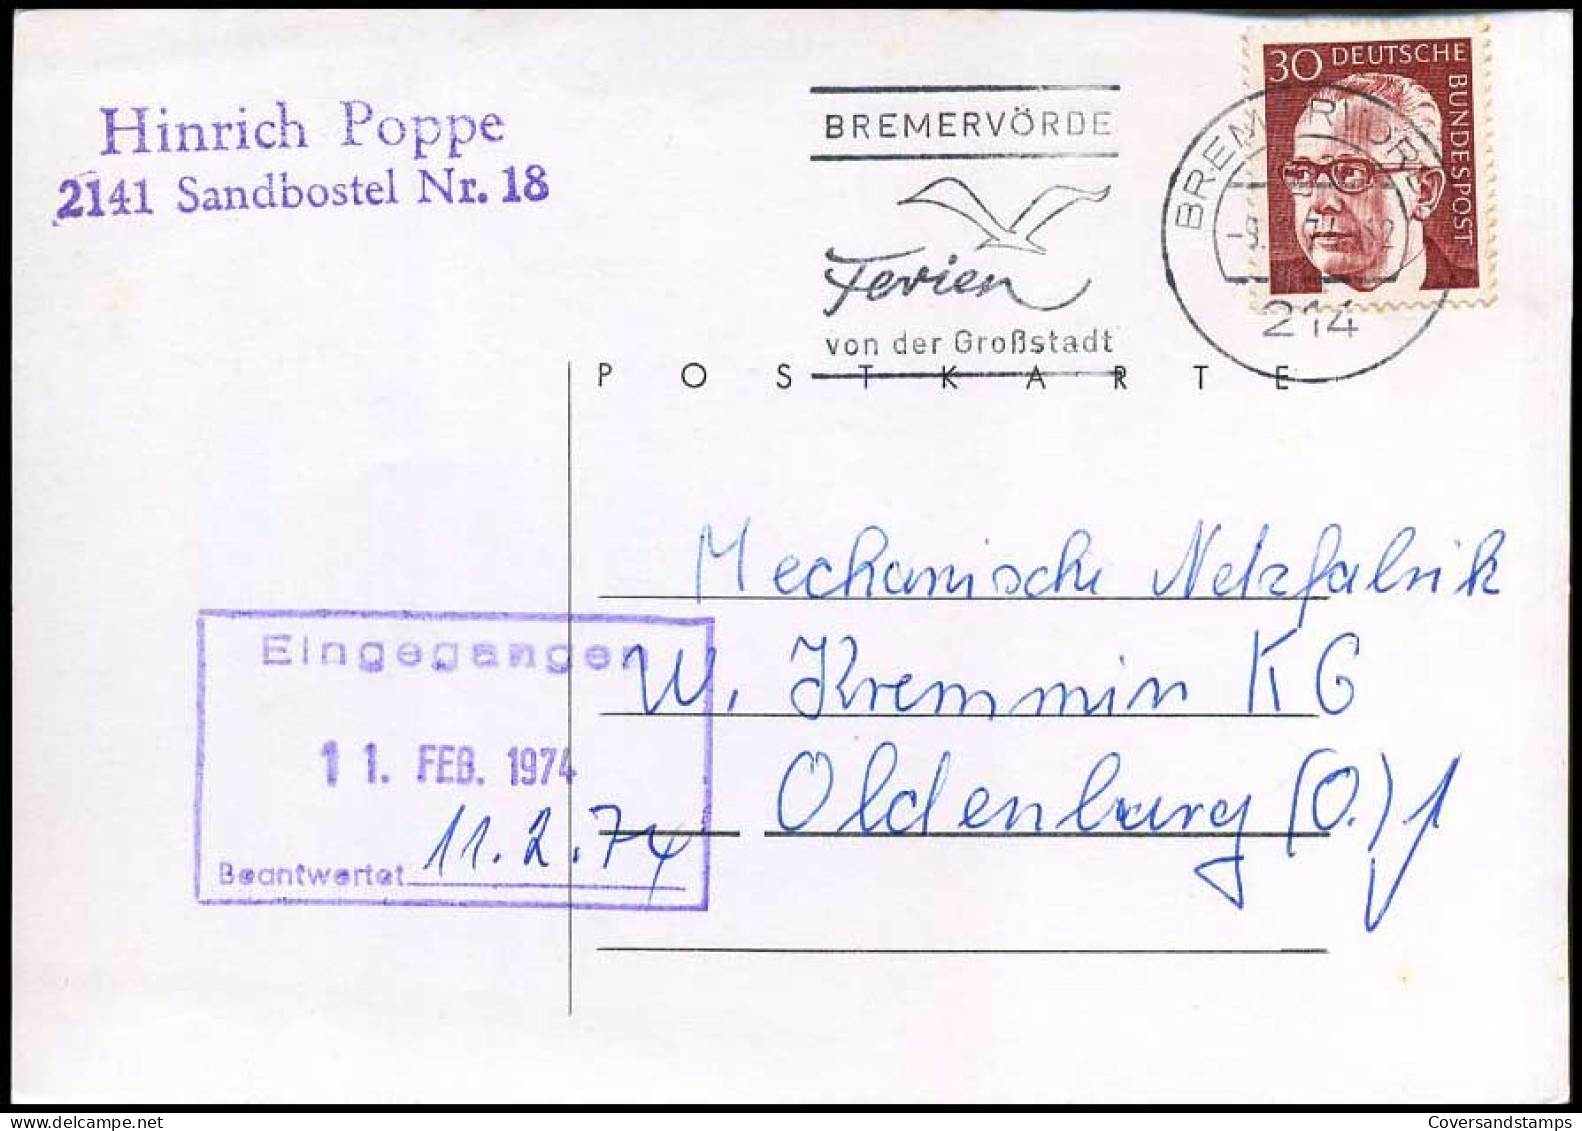 Hinrich Poppe
2141 Sandbostel Nr. 18
BREMERVÖRDE
Ferien
von der Großstadt
30 DEUTSCHE
BUNDESPOST
214
POSTKARTE
Mechanische Netzfabrik
W. Kremmin KG
Oldenburg (O.)
Eingegangen
11. FEB. 1974
Beantwortet 11.2.74
Coversandstamps